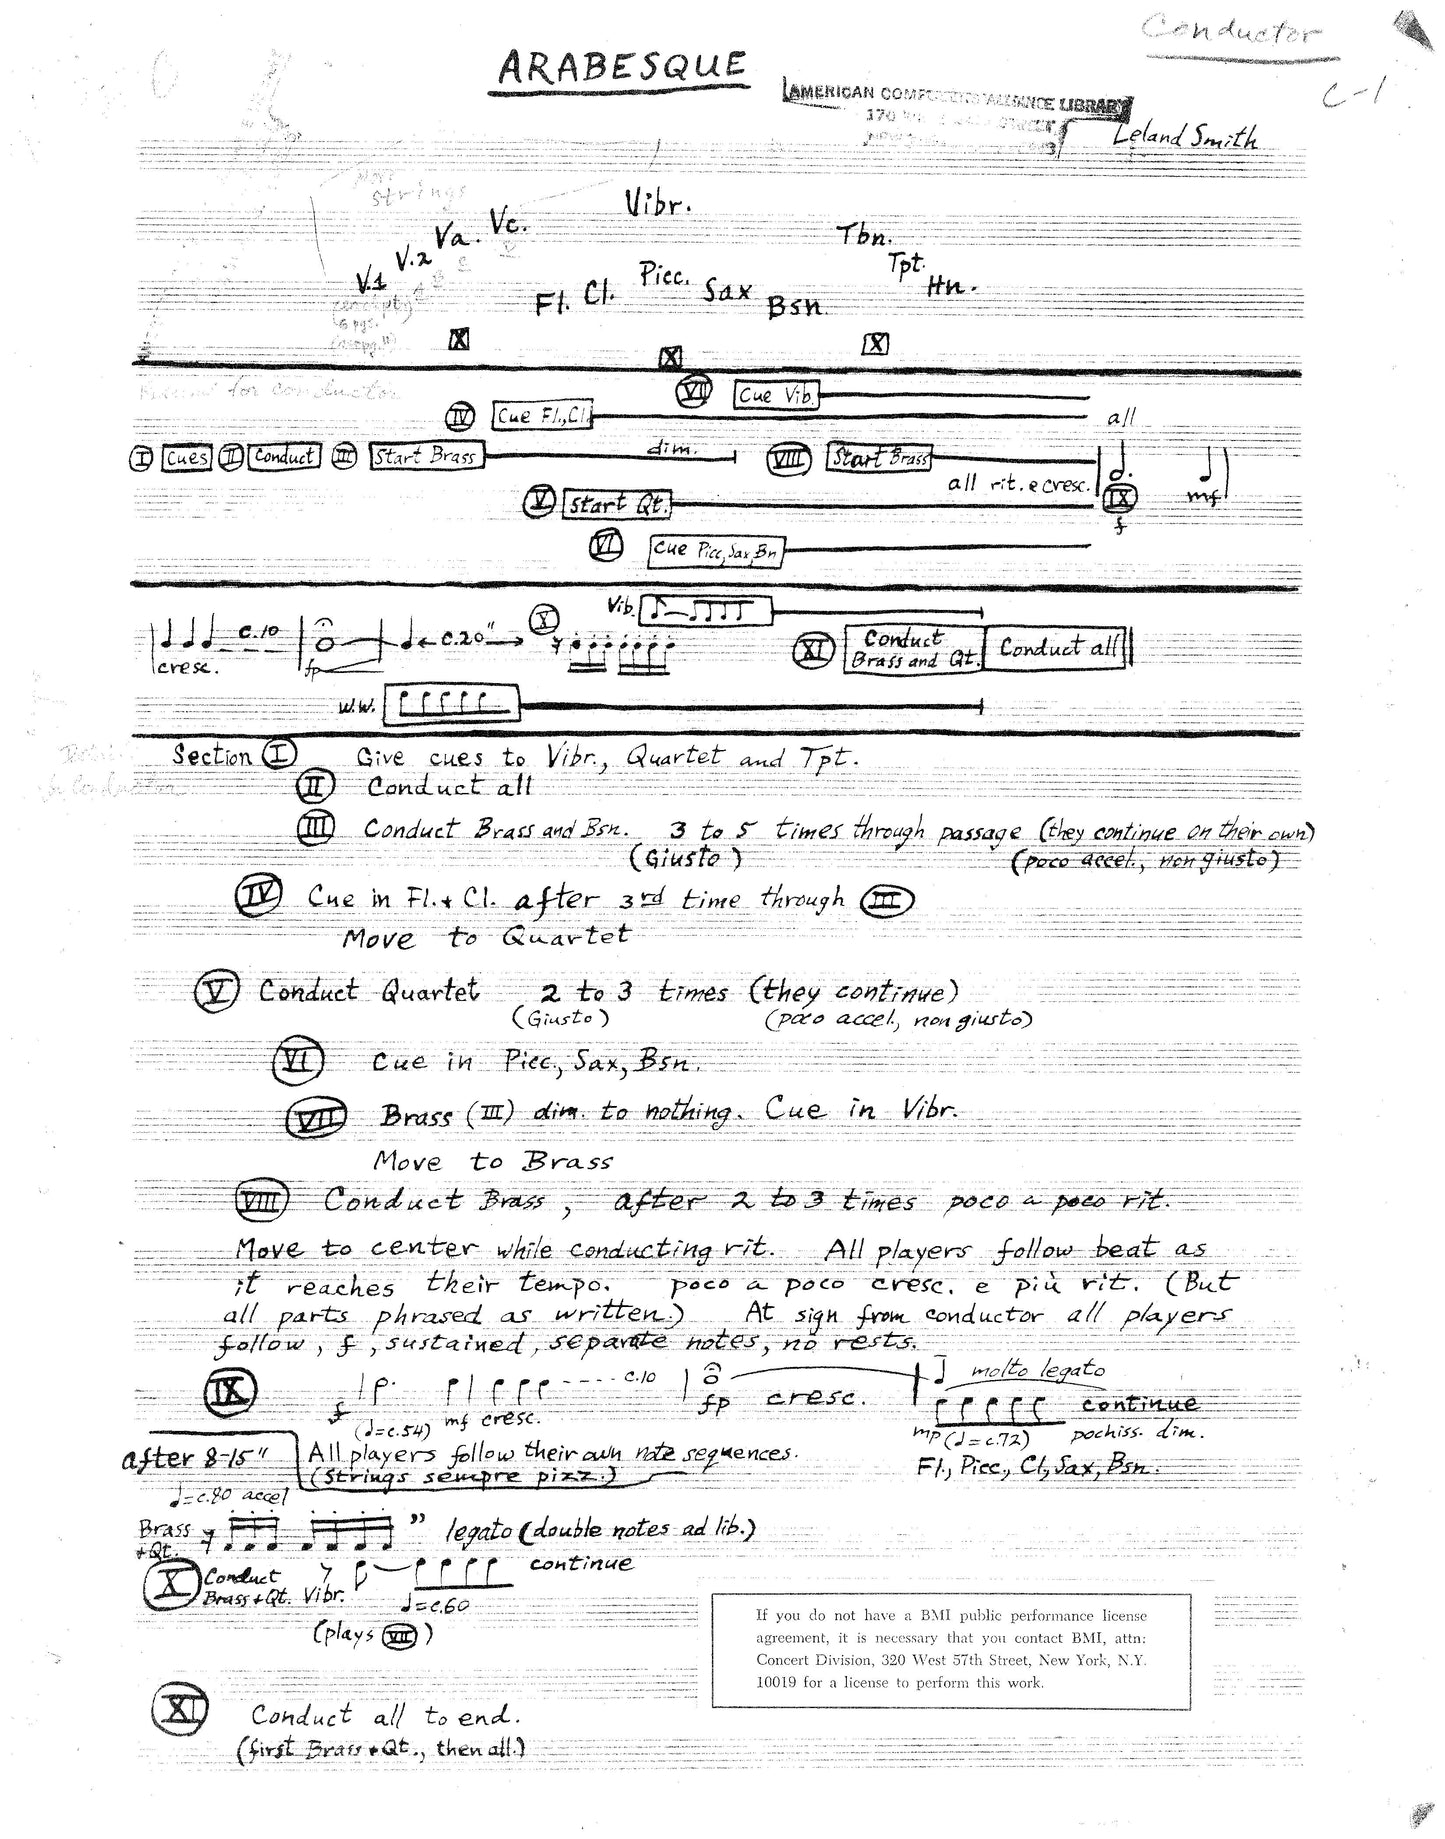 Conductor
C-1
ARABESQUE
AMERICAN COMPOSERS ALLIANCE LIBRARY
170
Leland Smith
strings
Vibr.
V.1 V.2 Va. Vc.
Tbn.
Tpt.
Hn.
Fl. Cl. Picc. Sax Bsn.
X X X
for conductor
VII Cue Vib.
IV Cue Fl., Cl.
all
I Cues II Conduct III Start Brass dim. VIII Start Brass
all rit. e cresc.
IX
f
mf
V Start Qt.
VI Cue Picc, Sax, Bn
Vib.
cresc. c.10 fp c.20" X
XI Conduct Brass and Qt. Conduct all
W.W.
Section I Give cues to Vibr., Quartet and Tpt.
II Conduct all
III Conduct Brass and Bsn. 3 to 5 times through passage (they continue on their own)
(Giusto) (poco accel., non giusto)
IV Cue in Fl. + Cl. after 3rd time through III
Move to Quartet
V Conduct Quartet 2 to 3 times (they continue)
(Giusto) (poco accel., non giusto)
VI Cue in Picc., Sax, Bsn.
VII Brass (III) dim. to nothing. Cue in Vibr.
Move to Brass
VIII Conduct Brass, after 2 to 3 times poco a poco rit.
Move to center while conducting rit. All players follow beat as
it reaches their tempo. poco a poco cresc. e più rit. (But
all parts phrased as written.) At sign from conductor all players
follow, f, sustained, separate notes, no rests.
IX f (♩=c.54) mf cresc. c.10 fp cresc. molto legato continue
mp (♩=c.72) pochiss. dim.
Fl., Picc., Cl, Sax, Bsn.
after 8-15" All players follow their own note sequences.
(Strings sempre pizz.)
♩=c.80 accel
Brass + Qt. legato (double notes ad lib.)
X Conduct Brass + Qt. Vibr. continue
♩=c.60
(plays VII)
If you do not have a BMI public performance license
agreement, it is necessary that you contact BMI, attn:
Concert Division, 320 West 57th Street, New York, N.Y.
10019 for a license to perform this work.
XI Conduct all to end.
(first Brass + Qt., then all.)